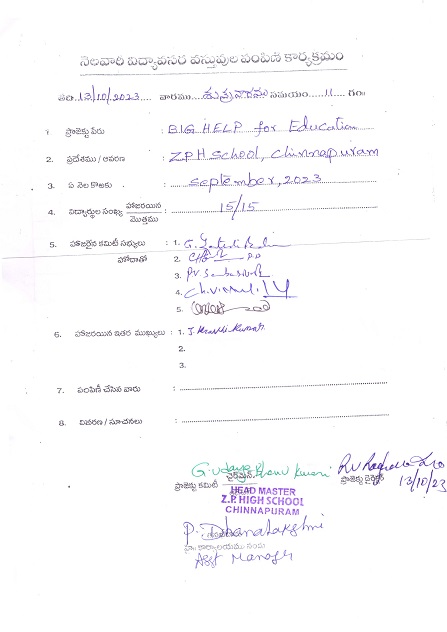 నెలవారి విద్యావసర వస్తువుల పంపిణి కార్యక్రమం
తేది: 13/10/2023 .... వారము.... శుక్రవారము సమయం.....11.... గం॥
1. ప్రాజెక్టు పేరు : BIG HELP for Education
2. ప్రదేశము / ఆవరణ : ZPH School, Chinnapuram
3. ఏ నెల కొఱకు : September, 2023
4. విద్యార్థుల సంఖ్య హాజరయిన / మొత్తము : 15/15
5. హాజరైన కమిటీ సభ్యులు : 1. G.
హోదాతో 2.
3. P.V.
4. Ch.
5.
6. హాజరయిన ఇతర ముఖ్యులు : 1. J. Kranthi Kumar
2.
3.
7. పంపిణీ చేసిన వారు :
8. వివరణ / సూచనలు :
G. Udaya Bhanu Kumari R.V. Raghava Rao
ప్రాజెక్టు కమిటీ ఛైర్మైన్ ప్రాజెక్టు డైరెక్టర్ 13/10/23
HEAD MASTER
Z.P. HIGH SCHOOL
CHINNAPURAM
P. Dhanalakshmi
Asst Manager